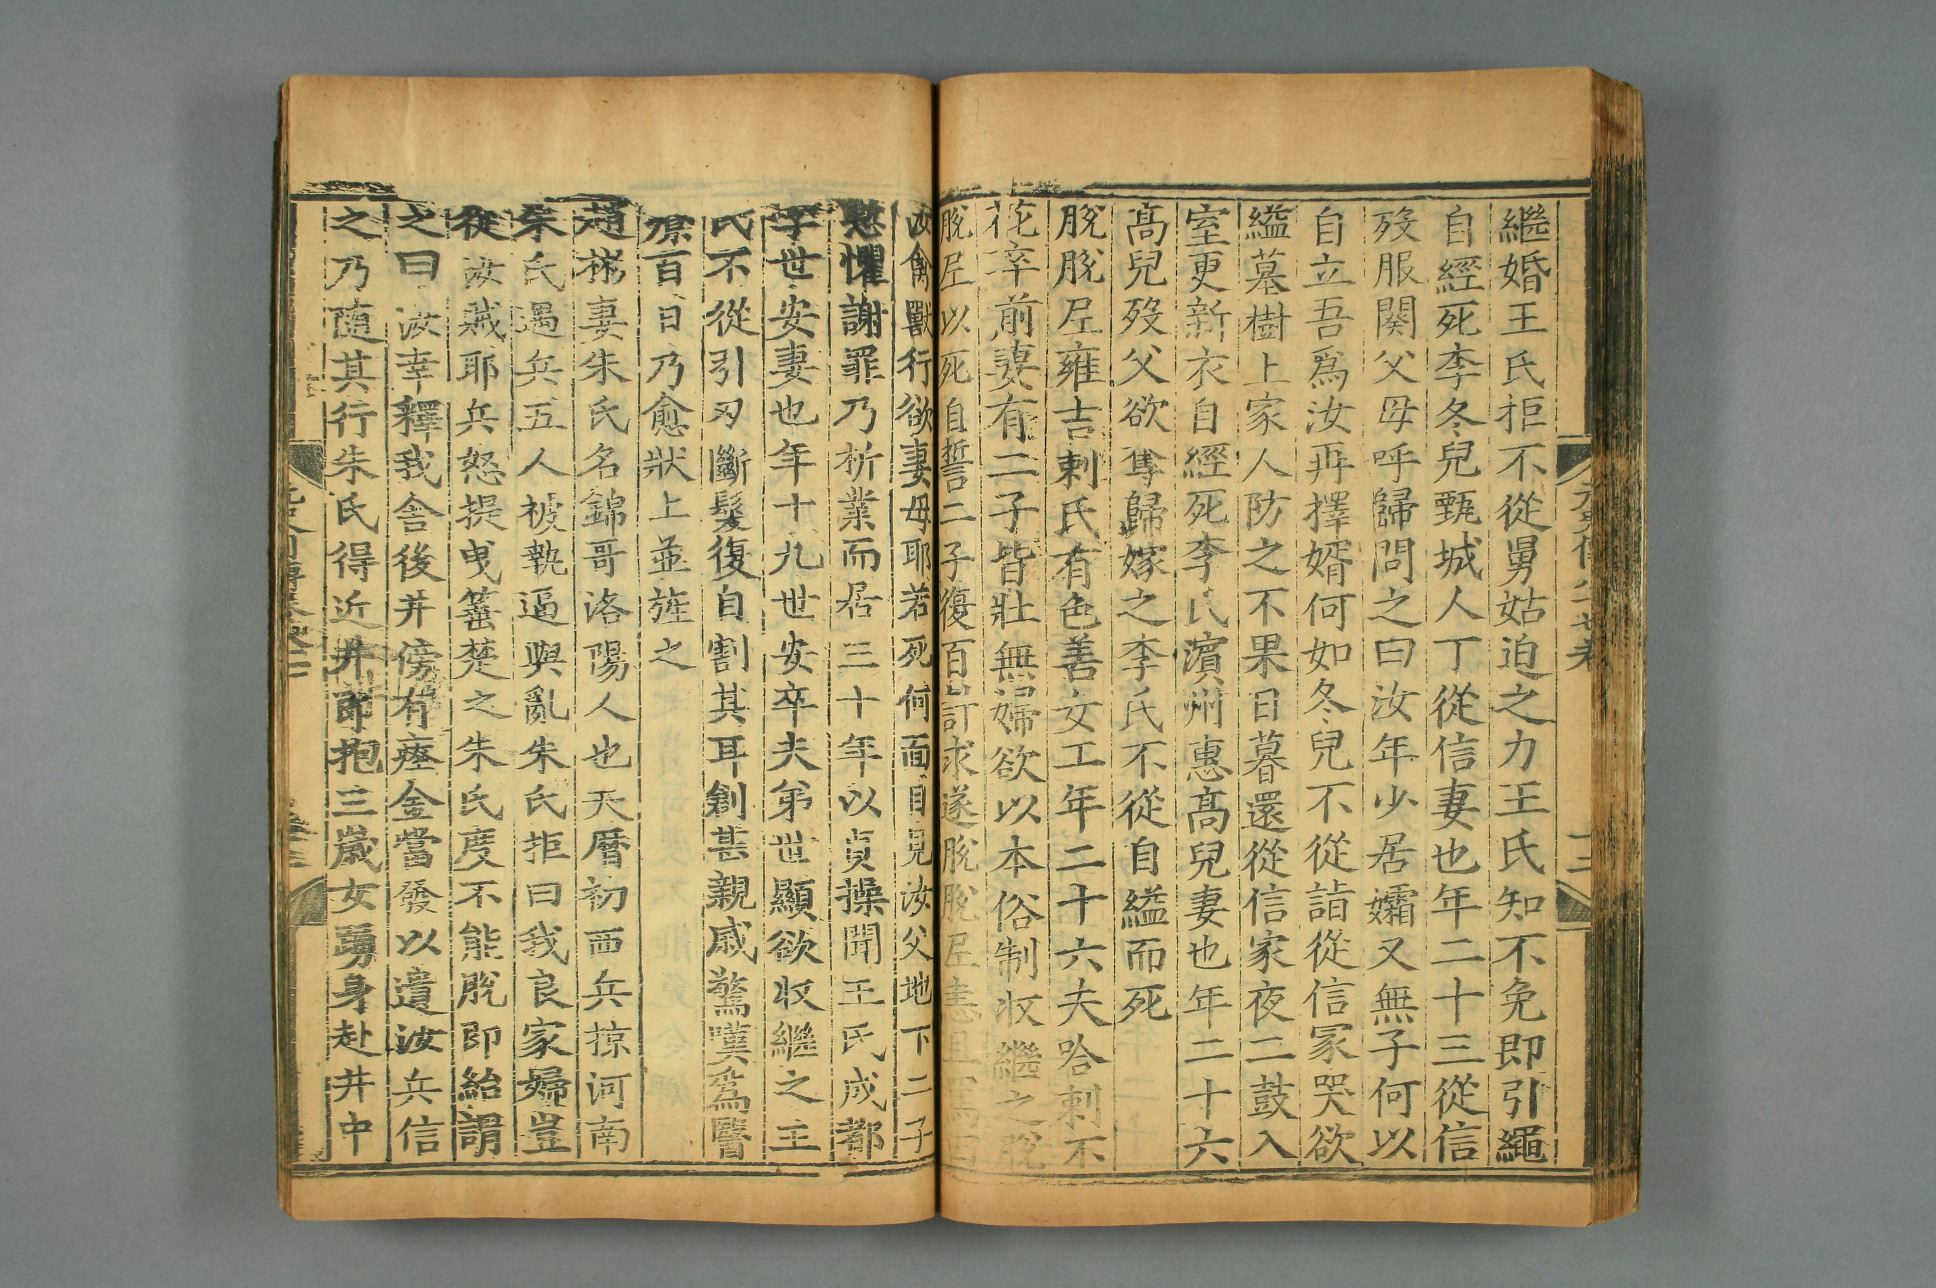 繼婚王氏拒不從舅姑迫之力王氏知不免即引繩
自經死李冬兒甄城人丁從信妻也年二十三從信
歿服闋父母呼歸問之曰汝年少居孀又無子何以
自立吾爲汝再擇婿何如冬兒不從詣從信冢哭欲
縊墓樹上家人防之不果日暮還從信家夜二鼓入
室更新衣自經死李氏濱州惠高兒妻也年二十六
高兒歿父欲奪歸嫁之李氏不從自縊而死
脫脫尼雍吉剌氏有色善女工年二十六夫哈剌不
花卒前妻有二子皆壯無婦欲以本俗制收繼之脫
脫尼以死自誓二子復百計求遂脫脫尼恚且罵曰
汝禽獸行欲妻母耶若死何面目見汝父地下二子
慙懼謝罪乃析業而居三十年以貞操聞王氏成都
李世安妻也年十九世安卒夫弟世顯欲收繼之王
氏不從引刃斷髮復自割其耳創甚親戚驚嘆爲醫
療百日乃愈狀上並旌之
趙彬妻朱氏名錦哥洛陽人也天曆初西兵掠河南
朱氏遇兵五人被執逼與亂朱氏拒曰我良家婦豈
從汝賊耶兵怒提曳箠楚之朱氏度不能脫即紿謂
之曰汝幸釋我舍後井傍有瘞金當發以遺汝兵信
之乃隨其行朱氏得近井即抱三歲女踴身赴井中